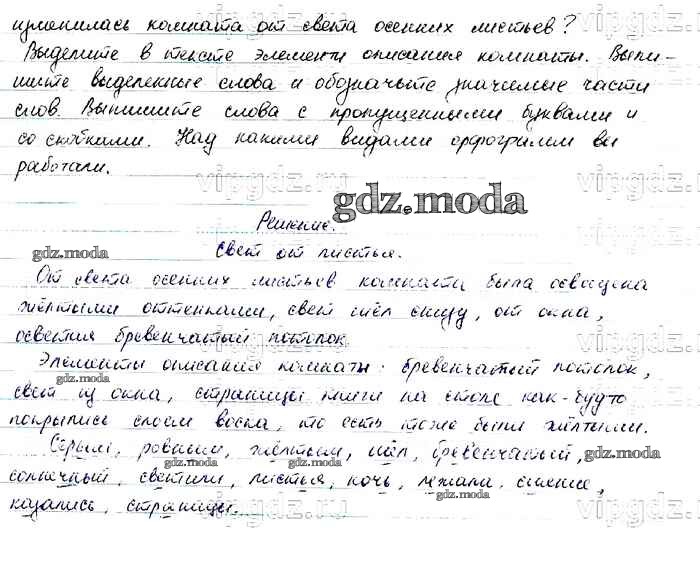 изменилась комната от света осенних листьев?
Выделите в тексте элементы описания комнаты. Выпи-
шите выделенные слова и обозначьте значимые части
слов. Выпишите слова с пропущенными буквами и
со скобками. Над какими видами орфограмм вы
работали.
vipgdz.ru
gdz.moda
Решение.
Свет от листья.
gdz.moda
От света осенних листьев комната была освещена
жёлтыми оттенками, свет шёл снизу, от окна,
осветил бревенчатый потолок.
Элементы описания комнаты: бревенчатый потолок,
gdz.moda
свет из окна, страницы книги на столе как-будто
покрылись слоем воска, то есть тоже были жёлтыми.
Серым, ровным, жёлтым, шёл, бревенчатый,
gdz.moda
солнечный, светили, листья, ночь, лежала, сияние,
казались, страницы.